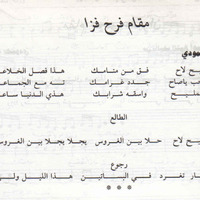 مقام فرح فزا
مودي
ح لاح فق من منامك هذا فصل الخلاعـ
ب ياصاح جدد غرامك نه مع الجماعـ
مليح واسقه شرابك هذي الدنيا ساعـ
الطالع
ح لاح حلا بين الغروس يجلا بجلا بين الغروس
رجوع
ار تغرد في البساتين هذا الليل ولى
* * *